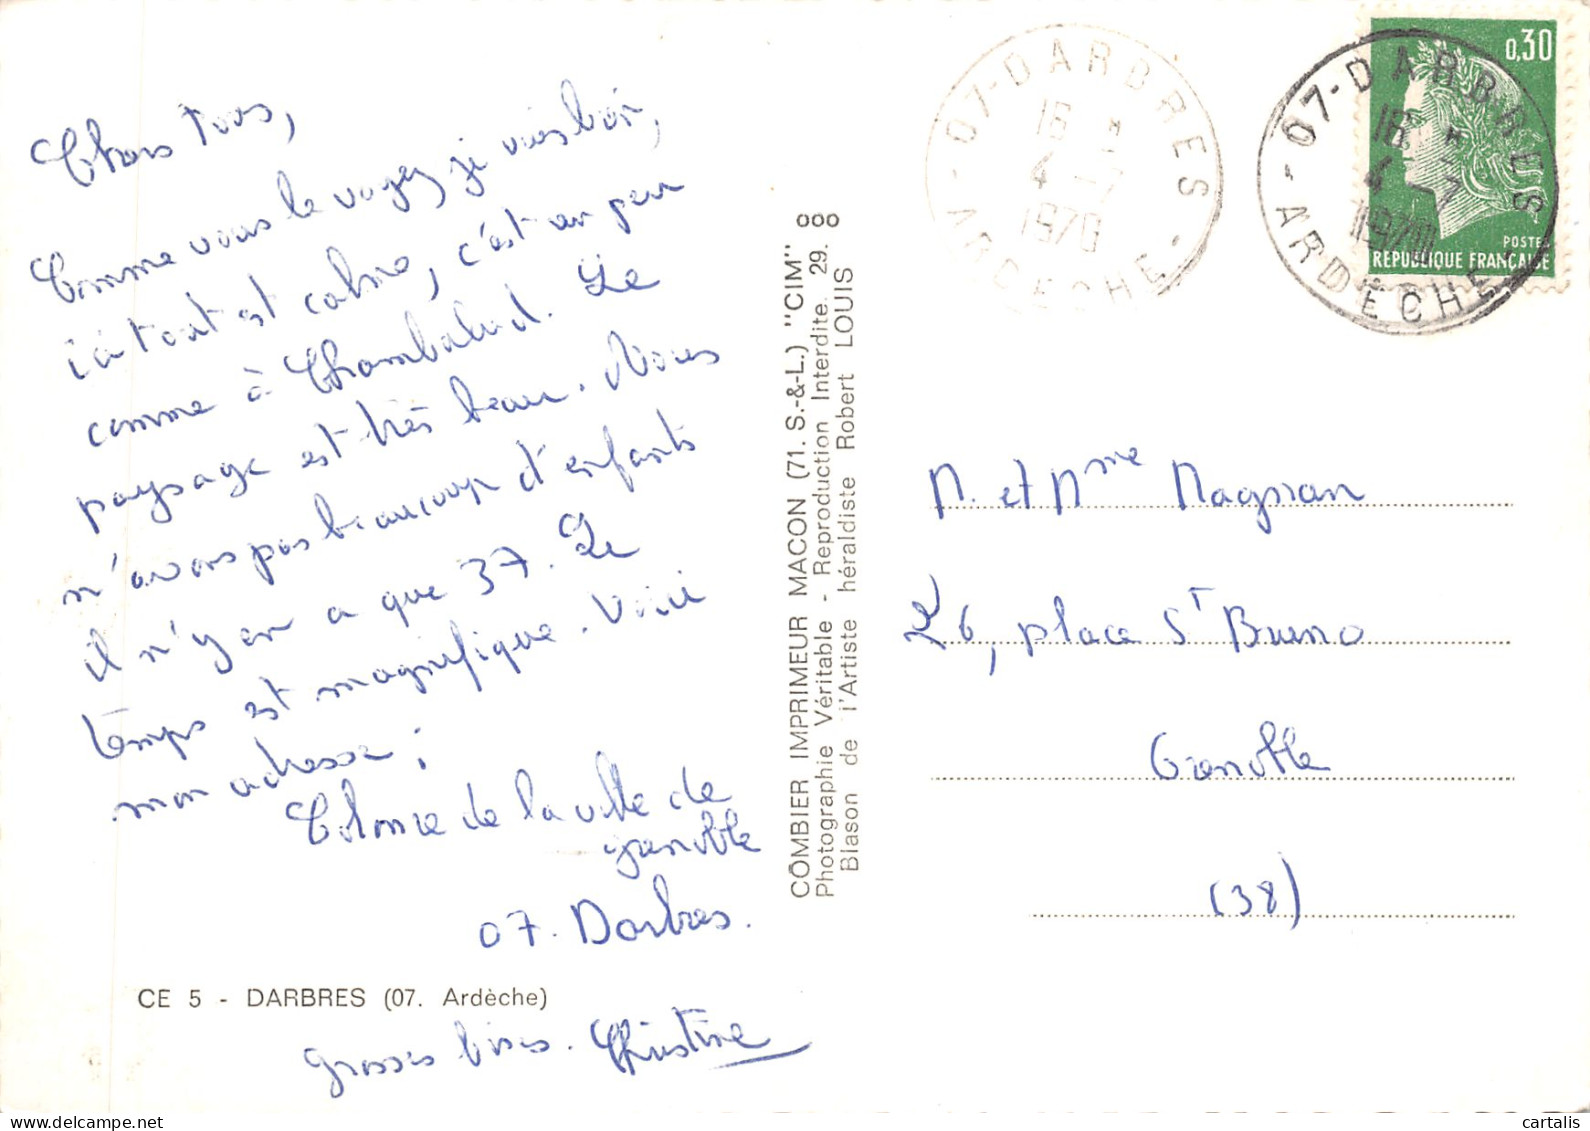 Chers tous,
Comme vous le voyez, je vais bien,
ici tout est calme, c'est un peu
comme à Chambalud. Le
paysage est très beau. Nous
n'avons pas beaucoup d'enfants
il n'y en a que 37. Le
temps est magnifique. Voici
mon adresse :
Colonie de la ville de
grenoble
07. Darbres.
CE 5 - DARBRES (07. Ardèche)
grosses bises. Christine
COMBIER IMPRIMEUR MACON (71. S.-&-L.) "CIM"
Photographie Véritable - Reproduction Interdite. 29.
Blason de l'Artiste héraldiste Robert LOUIS
07-DARBRES
16 H
4 -7
1970
ARDECHE
07-DARBRES
16 H
4 -7
1970
ARDECHE
0,30
POSTES
REPUBLIQUE FRANCAISE
M. et Mme Magnan
26, place St Bruno
Grenoble
(38)
cartalis